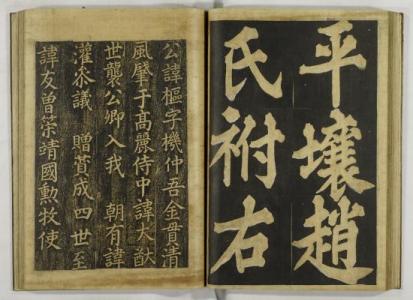 平壤趙
氏祔右
公諱樞字機仲吾金貫清
風肇于高麗侍中諱大猷
世襲公卿入我 朝有諱
灌叅議 贈贊成四世至
諱友曾策靖國勳牧使